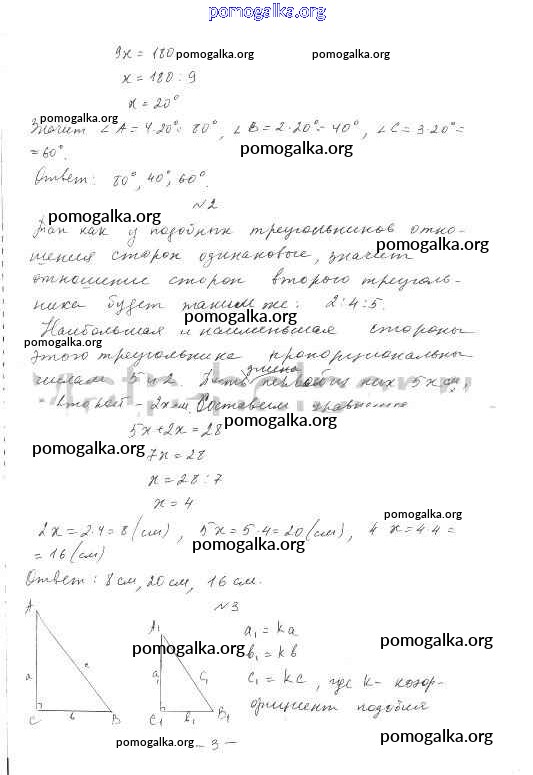 pomogalka.org
9x = 180 pomogalka.org pomogalka.org
x = 180 : 9
x = 20°
pomogalka.org
Значит ∠A = 4·20° = 80°, ∠B = 2·20° = 40°, ∠C = 3·20° =
= 60°.
pomogalka.org
Ответ: 80°, 40°, 60°.
№2
pomogalka.org
Так как у подобных треугольников отно-
pomogalka.org
шения сторон одинаковые, значит
отношение сторон второго треуголь-
ника будет таким же: 2:4:5.
pomogalka.org
Наибольшая и наименьшая стороны
pomogalka.org
этого треугольника пропорциональны
длина
числам 5 и 2. первой из них 5x см,
второй - 2x см. Составим уравнение
pomogalka.org
5x + 2x = 28
pomogalka.org
7x = 28
pomogalka.org
x = 28 : 7
x = 4
pomogalka.org
2x = 2·4 = 8 (см), 5x = 5·4 = 20 (см), 4x = 4·4 =
pomogalka.org
= 16 (см)
Ответ: 8 см, 20 см, 16 см.
№3
A a c C b B
A₁ a₁ c₁ C₁ b₁ B₁
a₁ = ka
pomogalka.org pomogalka.org
b₁ = kb
c₁ = kc, где k - коэф-
фициент подобия
pomogalka.org - 3 - pomogalka.org